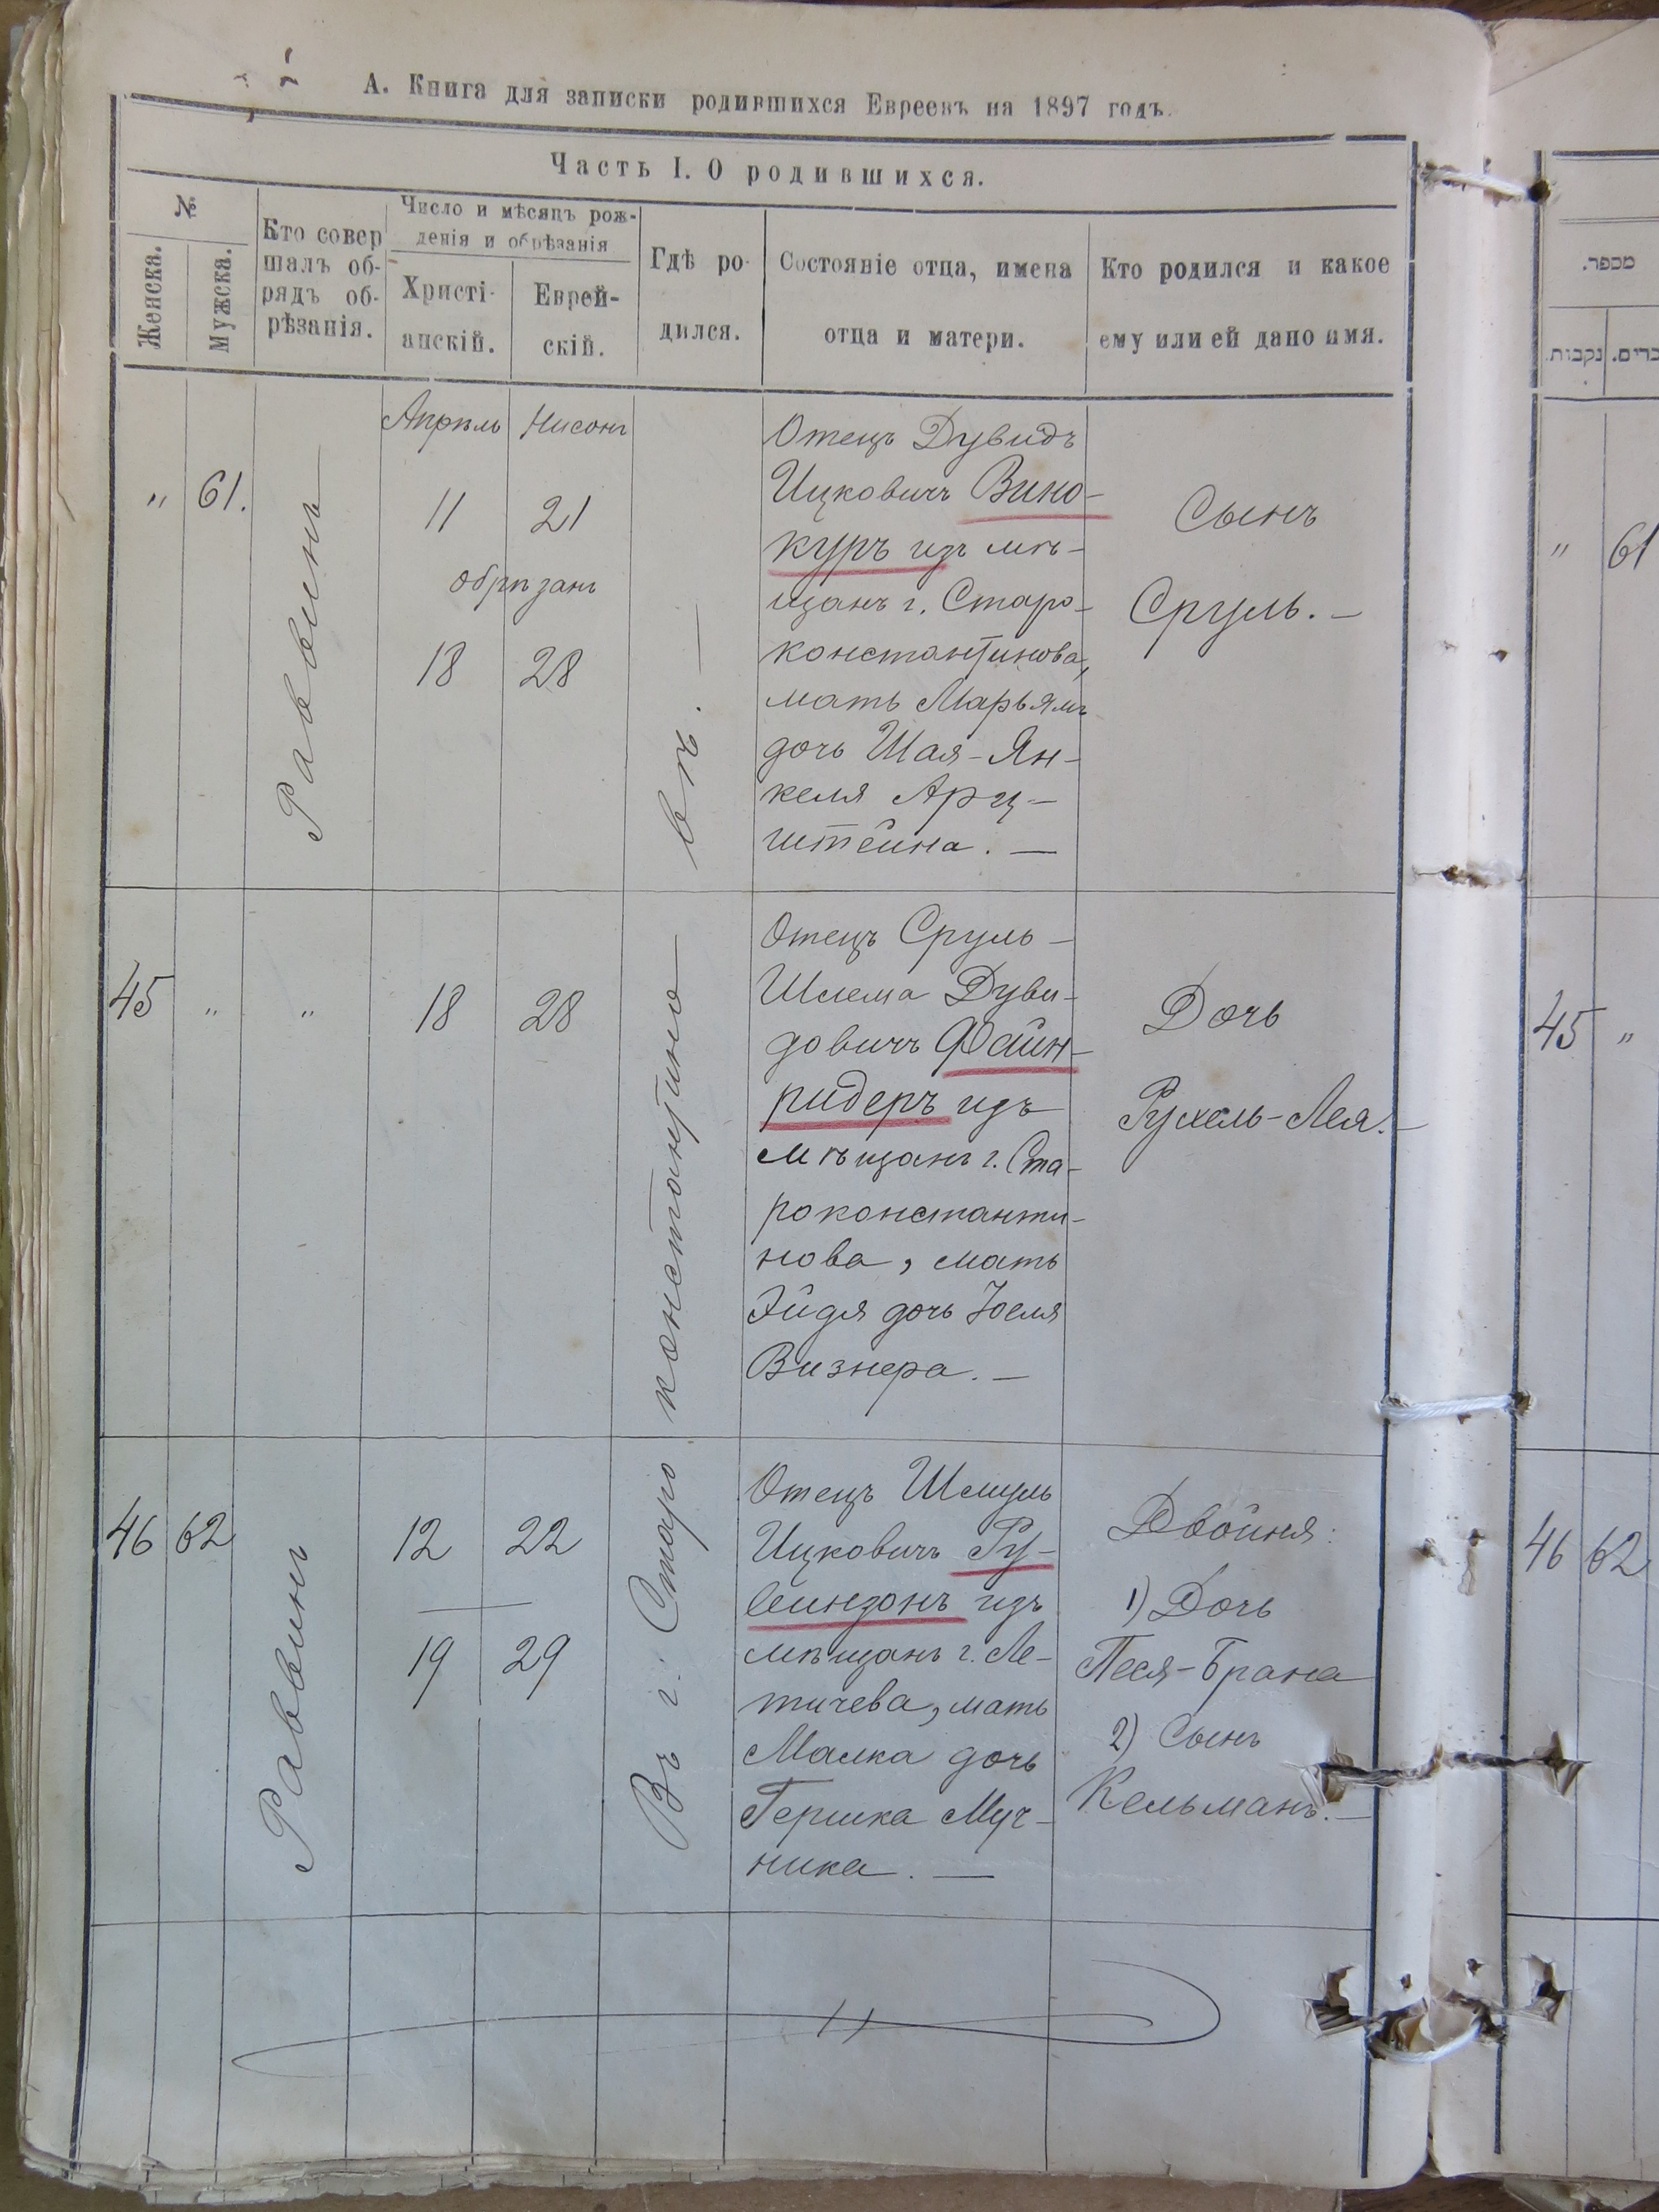 А. Книга для записки родившихся Евреевъ на 1897 годъ.
Часть I. О родившихся.
№
Женска.
Мужска.
Кто совер
шалъ об-
рядъ об-
рѣзанія.
Число и мѣсяцъ рож-
денія и обрѣзанія
Христі-
анскій.
Еврей-
скій.
Гдѣ ро-
дился.
Состояніе отца, имена
отца и матери.
Кто родился и какое
ему или ей дано имя.
" 61.
Раввинъ
Апрѣль Нисонъ
11 21
обрѣзанъ
18 28
Отецъ Дувидъ
Ицковичъ Вино-
куръ изъ мѣ-
щанъ г. Старо-
константинова,
мать Марьямъ
дочь Шая-Ян-
келя Арц-
штейна. —
Сынъ
Сруль. —
Въ г. Старо константино вѣ. —
45 " " 18 28
Отецъ Сруль-
Шлема Дуви-
довичъ Файн-
ридеръ изъ
мѣщанъ г. Ста-
роконстанти-
нова, мать
Эйдя дочь Іоеля
Визнера. —
Дочь
Рухель-Лея. —
46 62
Раввинъ
12 22
19 29
Отецъ Шмуль
Ицковичъ Ру-
бинзонъ изъ
мѣщанъ г. Ле-
тичева, мать
Малка дочь
Гершка Муч-
ника. —
Двойня:
1) Дочь
Песя-Брана
2) Сынъ
Кельманъ. —
מספר.
נקבות.
" 61
45 "
46 62